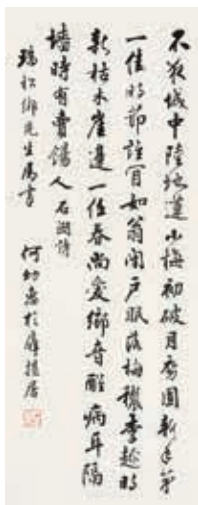 不夜城中陸地蓮小梅初破月初圓新年第
一佳時節誰肯如翁閉戶眠落梅穠李趁時
新枯木崖邊一任春尚愛鄉音醒病耳隔
牆時有賣餳人 石湖詩
松鄉先生屬書 何幼惠於居